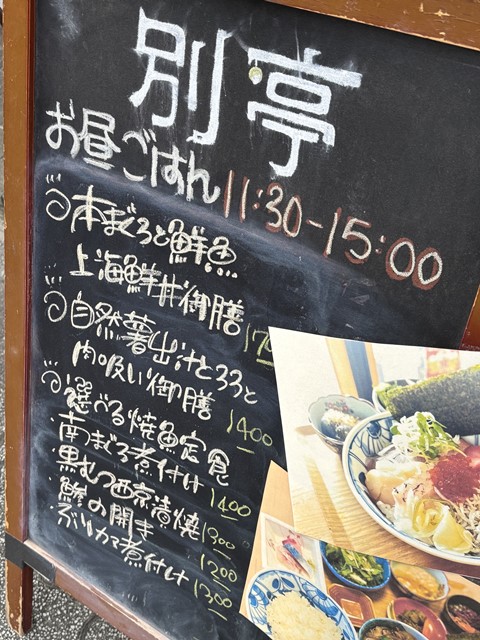 別亭
お昼ごはん 11:30-15:00
本まぐろと鮮魚
上海鮮丼御膳
自然薯出汁とろろと
肉吸い御膳 1400
選べる焼魚定食
南まぐろ煮付け 1400
黒むつ西京漬焼 1300
鯵の開き 1200
ブリカマ煮付け 1300